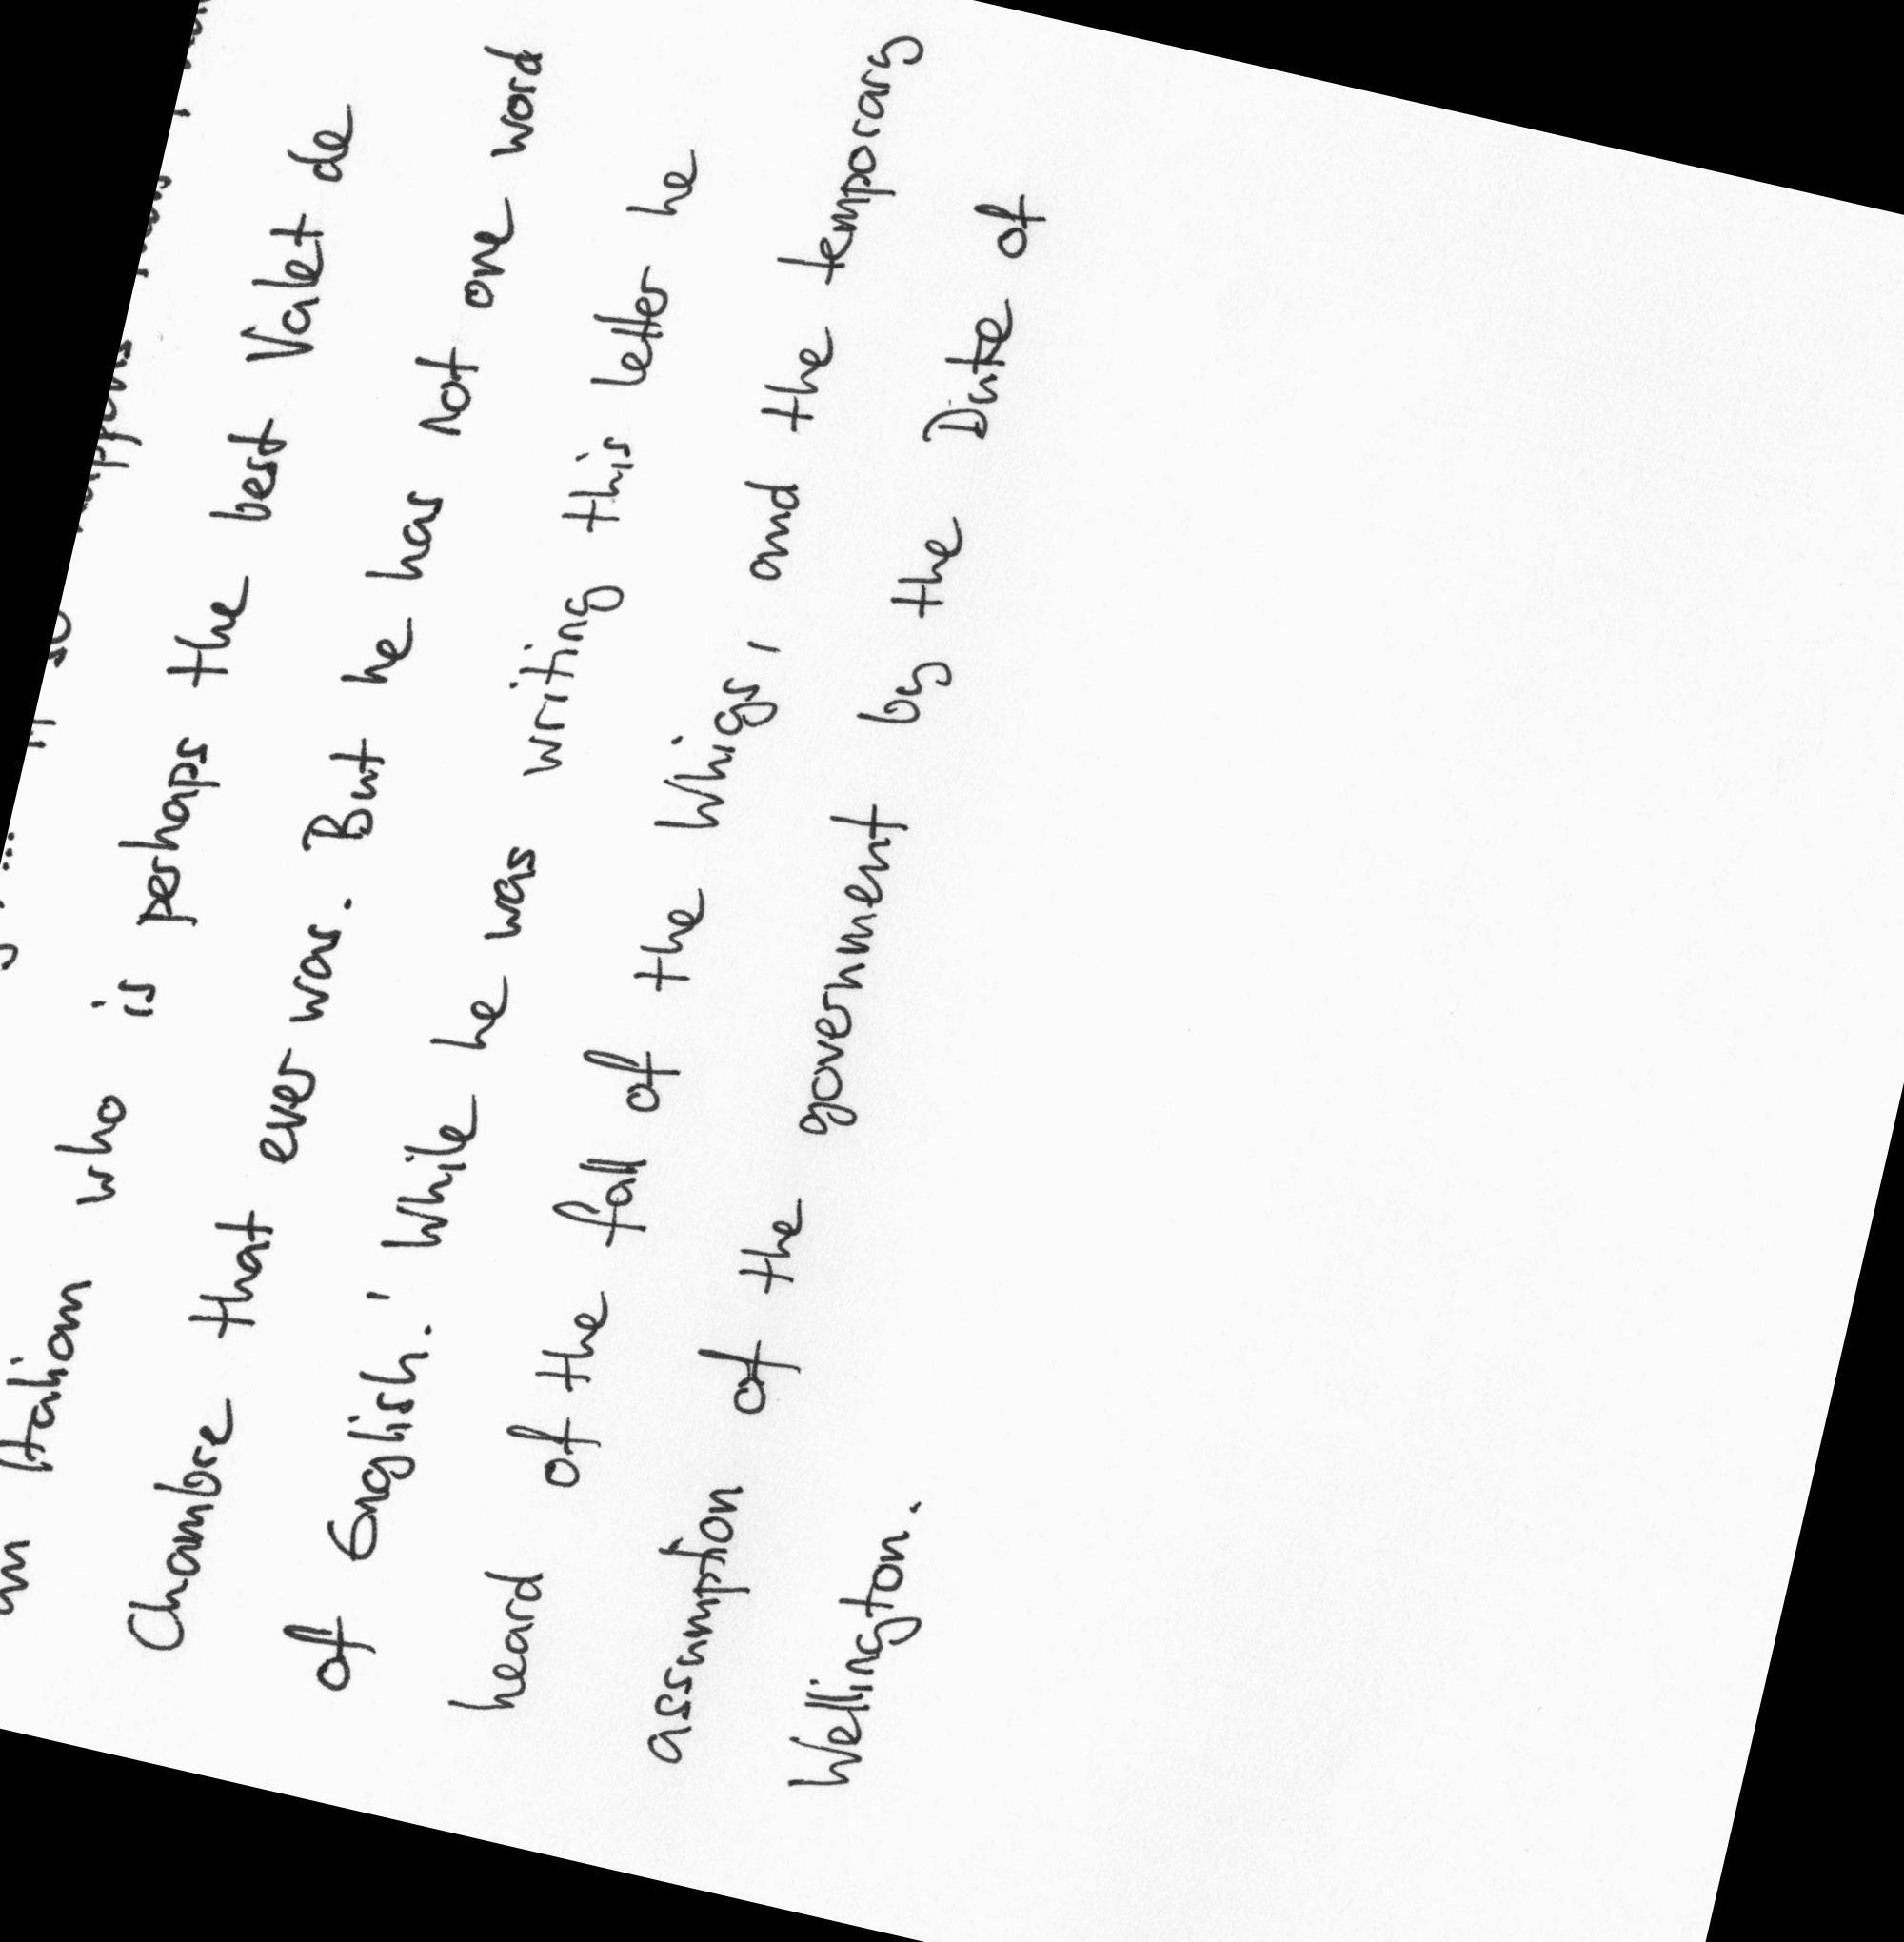 an Italian who is perhaps the best Valet de
Chambre that ever was. But he has not one word
of English. ' While he was writing this letter he
heard of the fall of the Whigs, and the temporary
assumption of the government by the Duke of
Wellington.